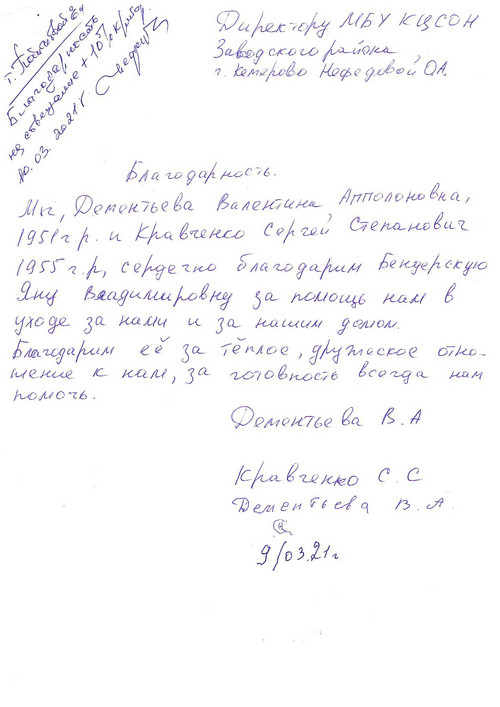 Директору МБУ КЦСОН
Заводского района
г. Кемерово Нефедовой О.А.
Благодарность
на совещание + 10%
10.03.2021г
Благодарность.
Мы, Дементьева Валентина Апполоновна,
1951г.р. и Кравченко Сергей Степанович
1955г.р, сердечно благодарим Бендерскую
Яну Владимировну за помощь нам в
уходе за нами и за нашим домом.
Благодарим её за тёплое, дружеское отно-
шение к нам, за готовность всегда нам
помочь.
Дементьева В.А
Кравченко С.С
Дементьева В.А.
9/03.21г